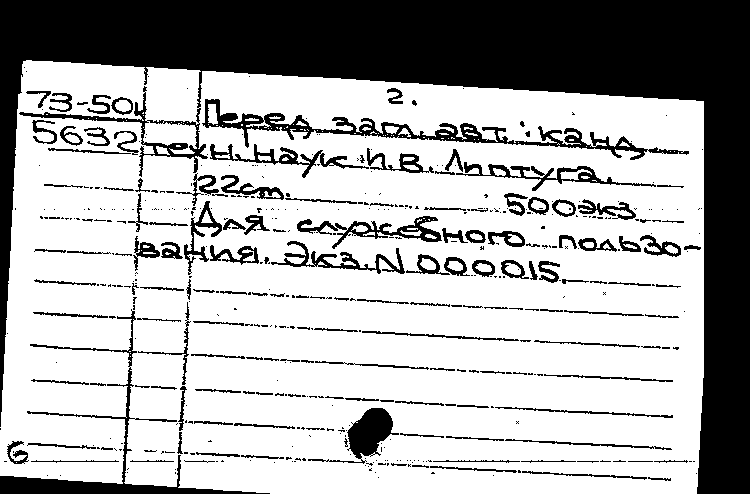 2.
73-50к
5632
Перед загл. авт.: канд.
техн. наук И.В. Липтуга.
22см. 500экз.
Для служебного пользо-
вания. Экз. N 000015.
6